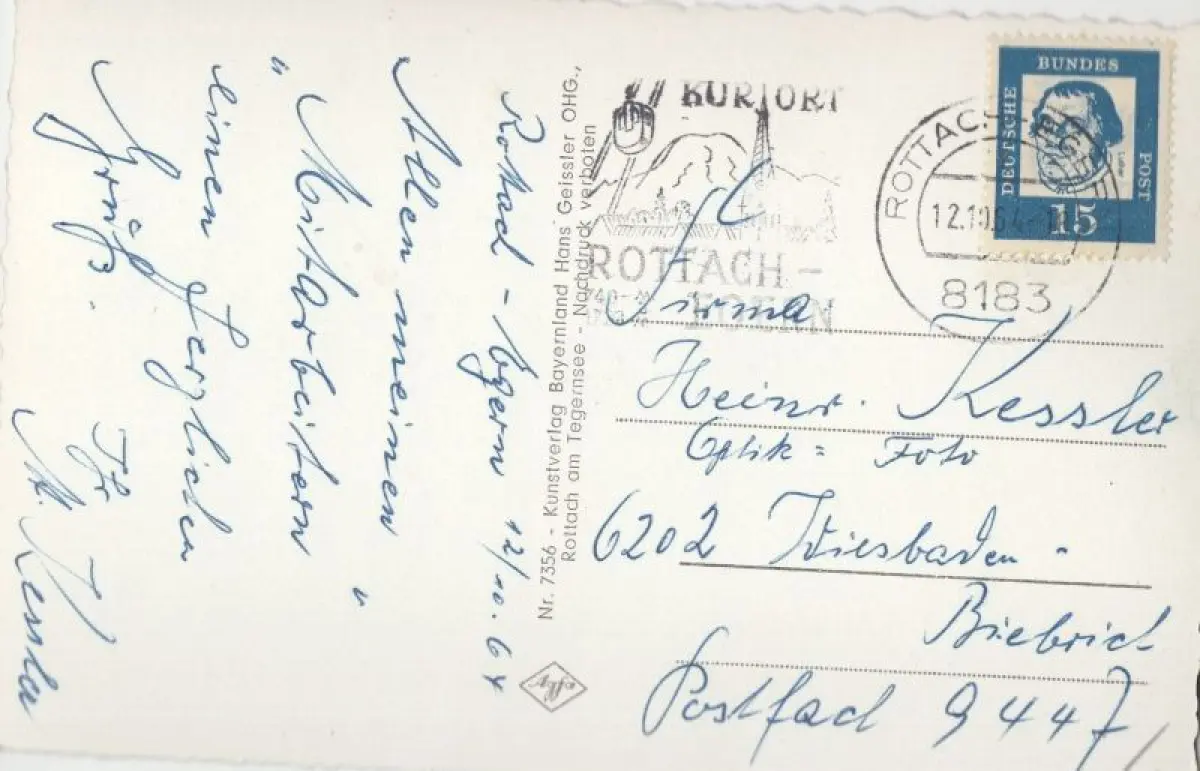 Rottach-Egern 12/10.64
Allen meinen
" Mitarbeitern "
einen herzlichen
Gruß.
Ihr
Kessler
Nr. 7356 - Kunstverlag Bayernland Hans Geissler OHG.,
Rottach am Tegernsee - Nachdruck verboten
KURORT
ROTTACH-
EGERN
ROTTACH-EGERN
12.10.64
8183
DEUTSCHE
BUNDES
POST
Luther
15
Firma
Heinr. Kessler
Optik = Foto
6202 Wiesbaden -
Biebrich
Postfach 9447